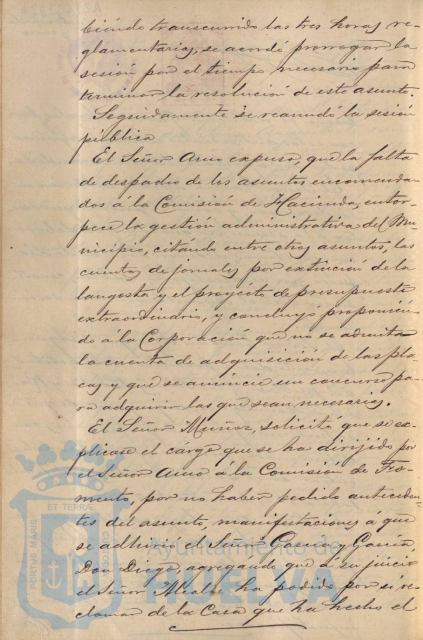 biéndo transcurrido las tres horas re-
glamentarias, se acordó prorrogar la
sesión por el tiempo necesario para
terminar la resolución de este asunto.
Seguidamente se reanudó la sesión
pública
El Señor Amo expuso, que la falta
de despacho de los asuntos encomenda-
dos á la Comisión de Hacienda, entor-
pece la gestión administrativa del Mu-
nicipio, citándo entre otros asuntos, las
cuentas de jornales por extinción de la
langosta y el proyécto de presupuesto
extraordinario, y concluyó proponién-
do á la Corporación que no se admita
la cuenta de adquisición de las pla-
cas y que se anuncie un concurso pa-
ra adquirir las que sean necesarias.
El Señor Muñoz, solicitá que se ex-
plicase el cargo que se ha dirijido por
el Señor Amo á la Comisión de Fo-
mento, por no haber pedido anteceden-
tes del asunto, manifestaciones á que
se adhirió el Señor García y García
Don Diego, agregando que á su juicio
el Señor Alcalde ha podido por sí re-
clamar de la Casa que ha hecho el
ET TERRÆ
PORTUS MARIS
CUSTODIA
Ayuntamiento de
HUELVA